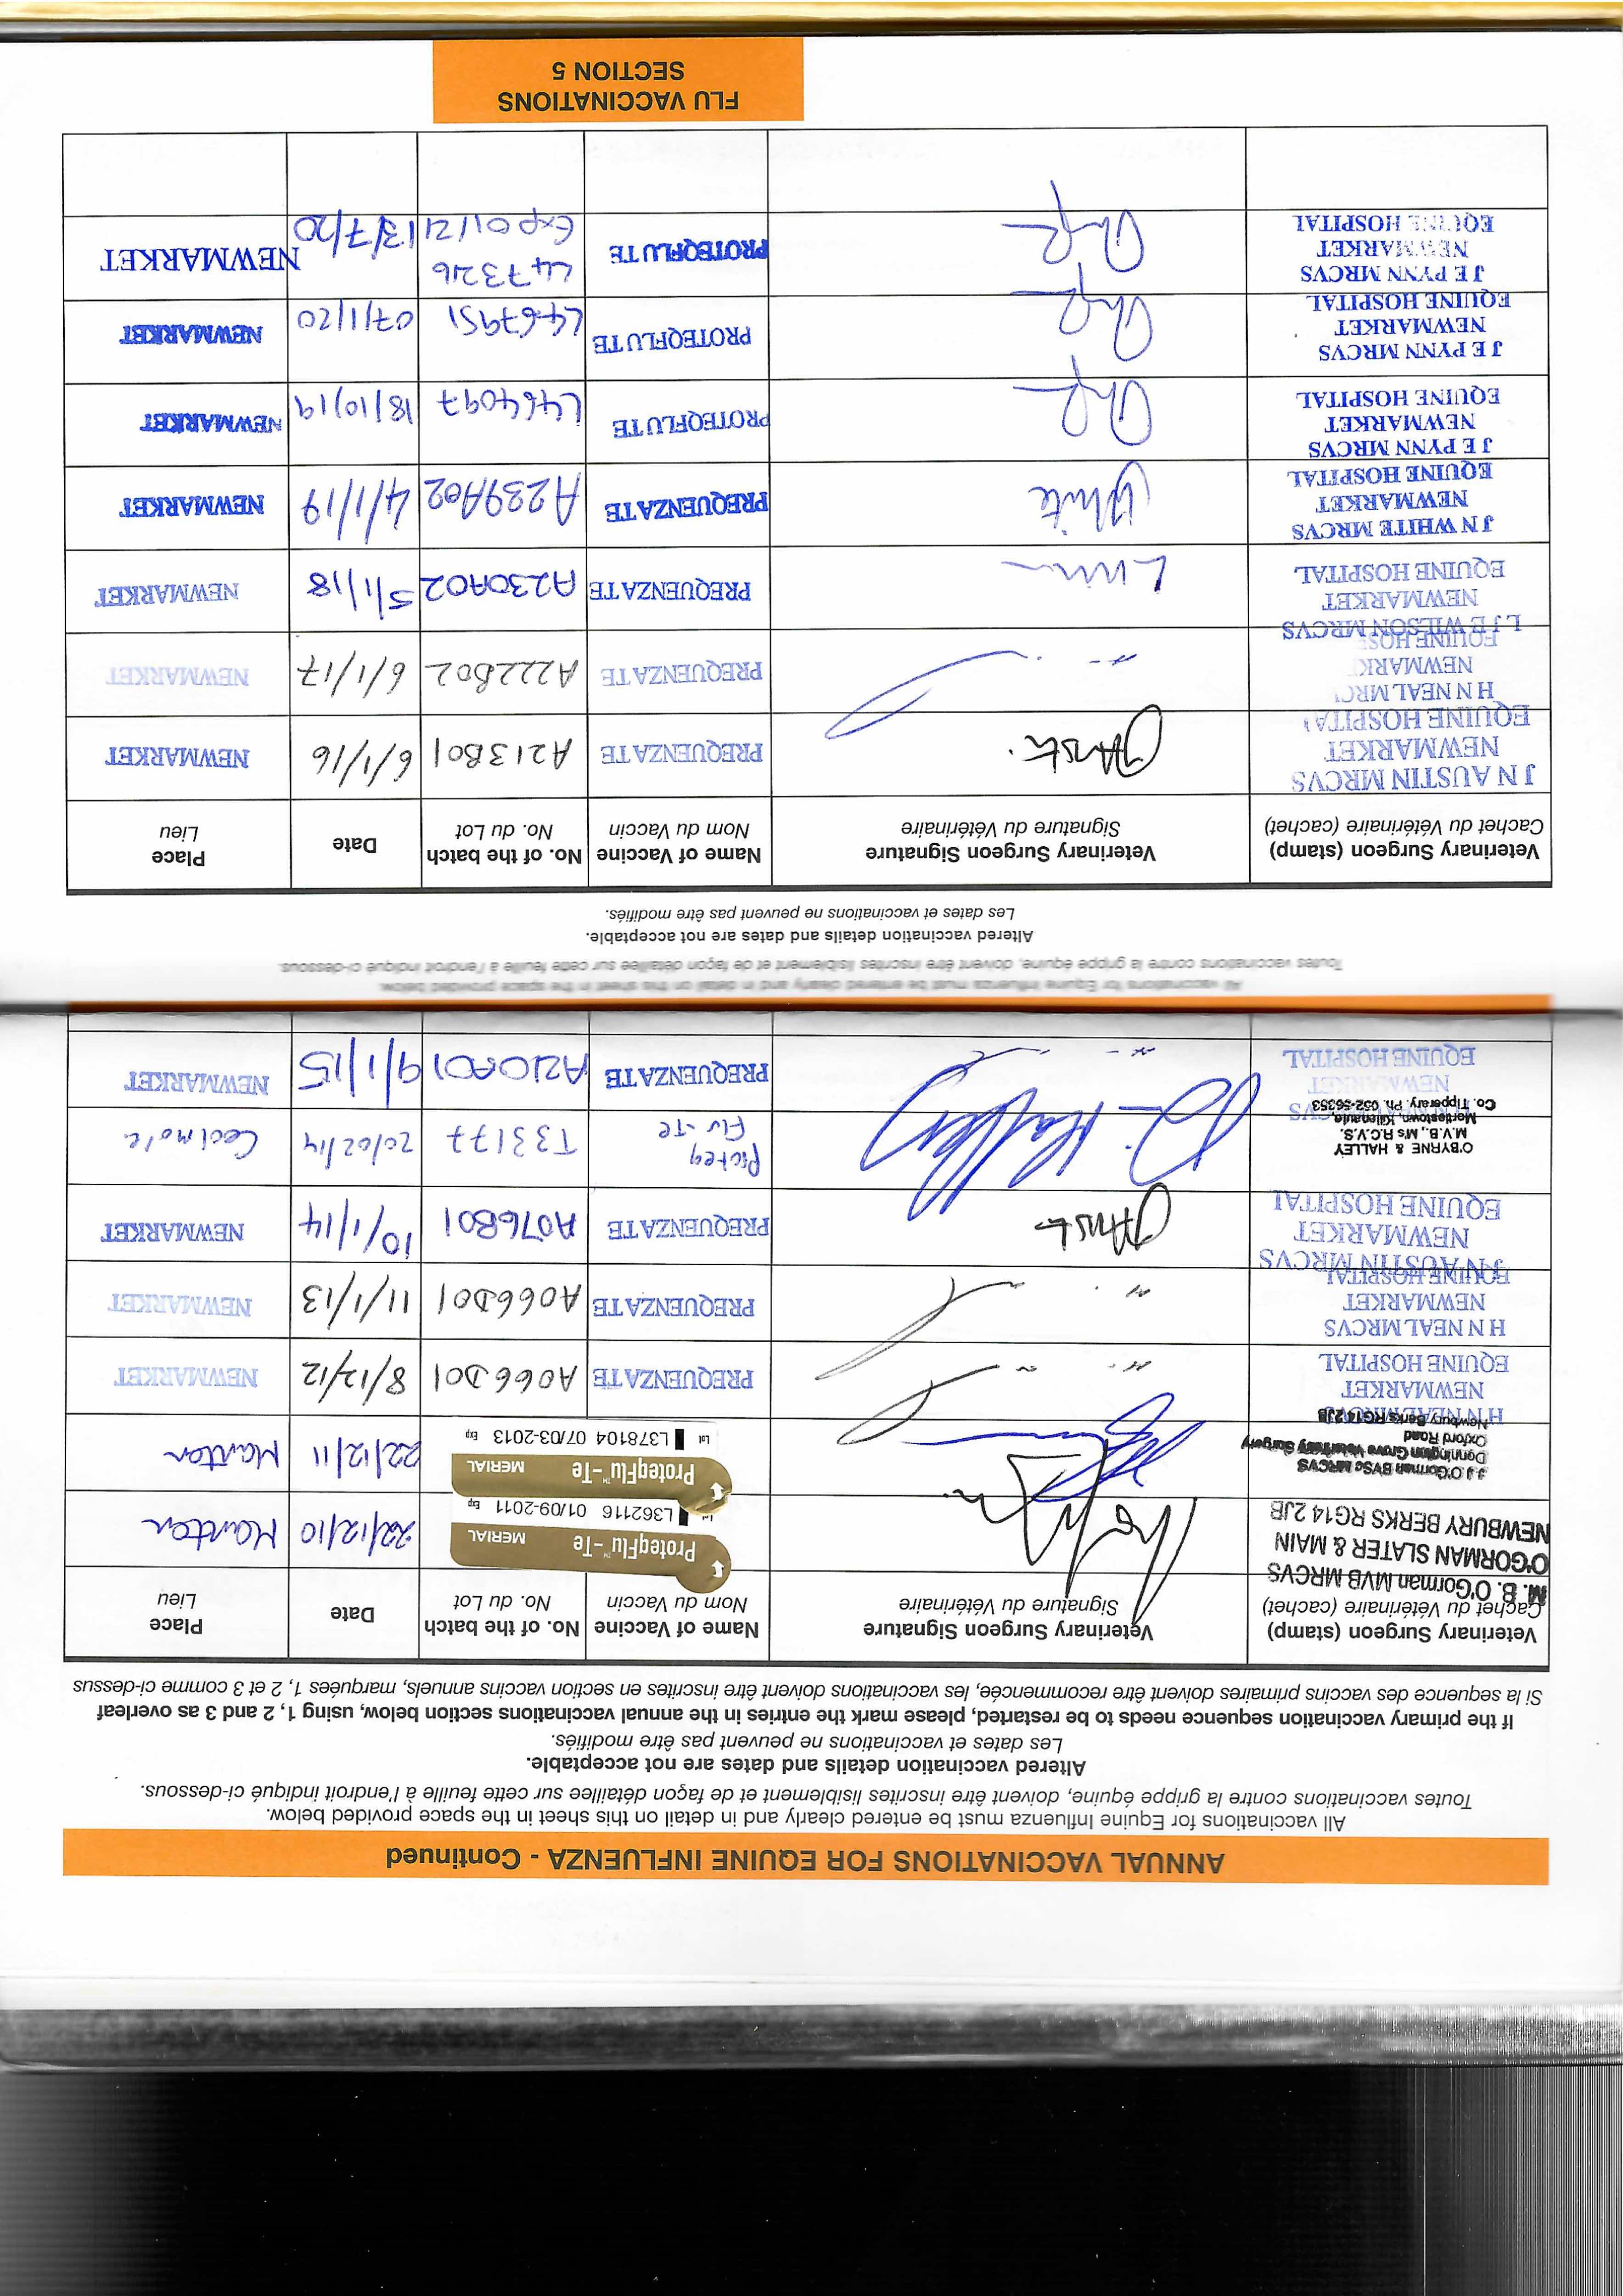 ANNUAL VACCINATIONS FOR EQUINE INFLUENZA - Continued
All vaccinations for Equine Influenza must be entered clearly and in detail on this sheet in the space provided below.
Toutes vaccinations contre la grippe équine, doivent être inscrites lisiblement et de façon détaillée sur cette feuille à l'endroit indiqué ci-dessous.
Altered vaccination details and dates are not acceptable.
Les dates et vaccinations ne peuvent pas être modifiés.
If the primary vaccination sequence needs to be restarted, please mark the entries in the annual vaccinations section below, using 1, 2 and 3 as overleaf
Si la sequence des vaccins primaires doivent être recommencée, les vaccinations doivent être inscrites en section vaccins annuels, marquées 1, 2 et 3 comme ci-dessus
Veterinary Surgeon (stamp) Veterinary Surgeon Signature Name of Vaccine No. of the batch Date Place
Cachet du Vétérinaire (cachet) Signature du Vétérinaire Nom du Vaccin No. du Lot Lieu
M. B. O'Gorman MVB MRCVS
O'GORMAN SLATER & MAIN
NEWBURY BERKS RG14 2JB
ProteqFlu™-Te MERIAL
Lot L362116 01/09-2011 Exp
22/12/10 Manton
J J O'Gorman BVSc MRCVS
Donnington Grove Veterinary Surgery
Oxford Road
Newbury Berks RG14 2JB
ProteqFlu™-Te MERIAL
Lot L378104 07/03-2013 Exp
22/12/11 Manton
H N NEAL MRCVS
NEWMARKET
EQUINE HOSPITAL
PREQUENZATE A066D01 8/12/12 NEWMARKET
H N NEAL MRCVS
NEWMARKET
EQUINE HOSPITAL
PREQUENZATE A066D01 11/1/13 NEWMARKET
J N AUSTIN MRCVS
NEWMARKET
EQUINE HOSPITAL
PREQUENZATE A076B01 10/1/14 NEWMARKET
O'BYRNE & HALLEY
M.V.B., Ms R.C.V.S.
Mortlestown, Killenaule,
Co. Tipperary. Ph. 052-56353
Proteq
Flu-Te
T33177 20/02/14 Coolmore
NEWMARKET
EQUINE HOSPITAL
PREQUENZATE A210A01 9/1/15 NEWMARKET
All vaccinations for Equine Influenza must be entered clearly and in detail on this sheet in the space provided below.
Toutes vaccinations contre la grippe équine, doivent être inscrites lisiblement et de façon détaillée sur cette feuille à l'endroit indiqué ci-dessous.
Altered vaccination details and dates are not acceptable.
Les dates et vaccinations ne peuvent pas être modifiés.
Veterinary Surgeon (stamp) Veterinary Surgeon Signature Name of Vaccine No. of the batch Date Place
Cachet du Vétérinaire (cachet) Signature du Vétérinaire Nom du Vaccin No. du Lot Lieu
J N AUSTIN MRCVS
NEWMARKET
EQUINE HOSPITAL
PREQUENZATE A213B01 6/1/16 NEWMARKET
H N NEAL MRC
NEWMARK
EQUINE HOS
PREQUENZATE A222B02 6/1/17 NEWMARKET
L J E WILSON MRCVS
NEWMARKET
EQUINE HOSPITAL
PREQUENZATE A230A02 5/1/18 NEWMARKET
J N WHITE MRCVS
NEWMARKET
EQUINE HOSPITAL
White PREQUENZATE A239A02 4/1/19 NEWMARKET
J E PYNN MRCVS
NEWMARKET
EQUINE HOSPITAL
PROTEQFLUTE L464097 18/10/19 NEWMARKET
J E PYNN MRCVS
NEWMARKET
EQUINE HOSPITAL
PROTEQFLUTE L467951 07/1/20 NEWMARKET
J E PYNN MRCVS
NEWMARKET
EQUINE HOSPITAL
PROTEQFLUTE L47326
Exp 01/21 13/7/20 NEWMARKET
FLU VACCINATIONS
SECTION 5